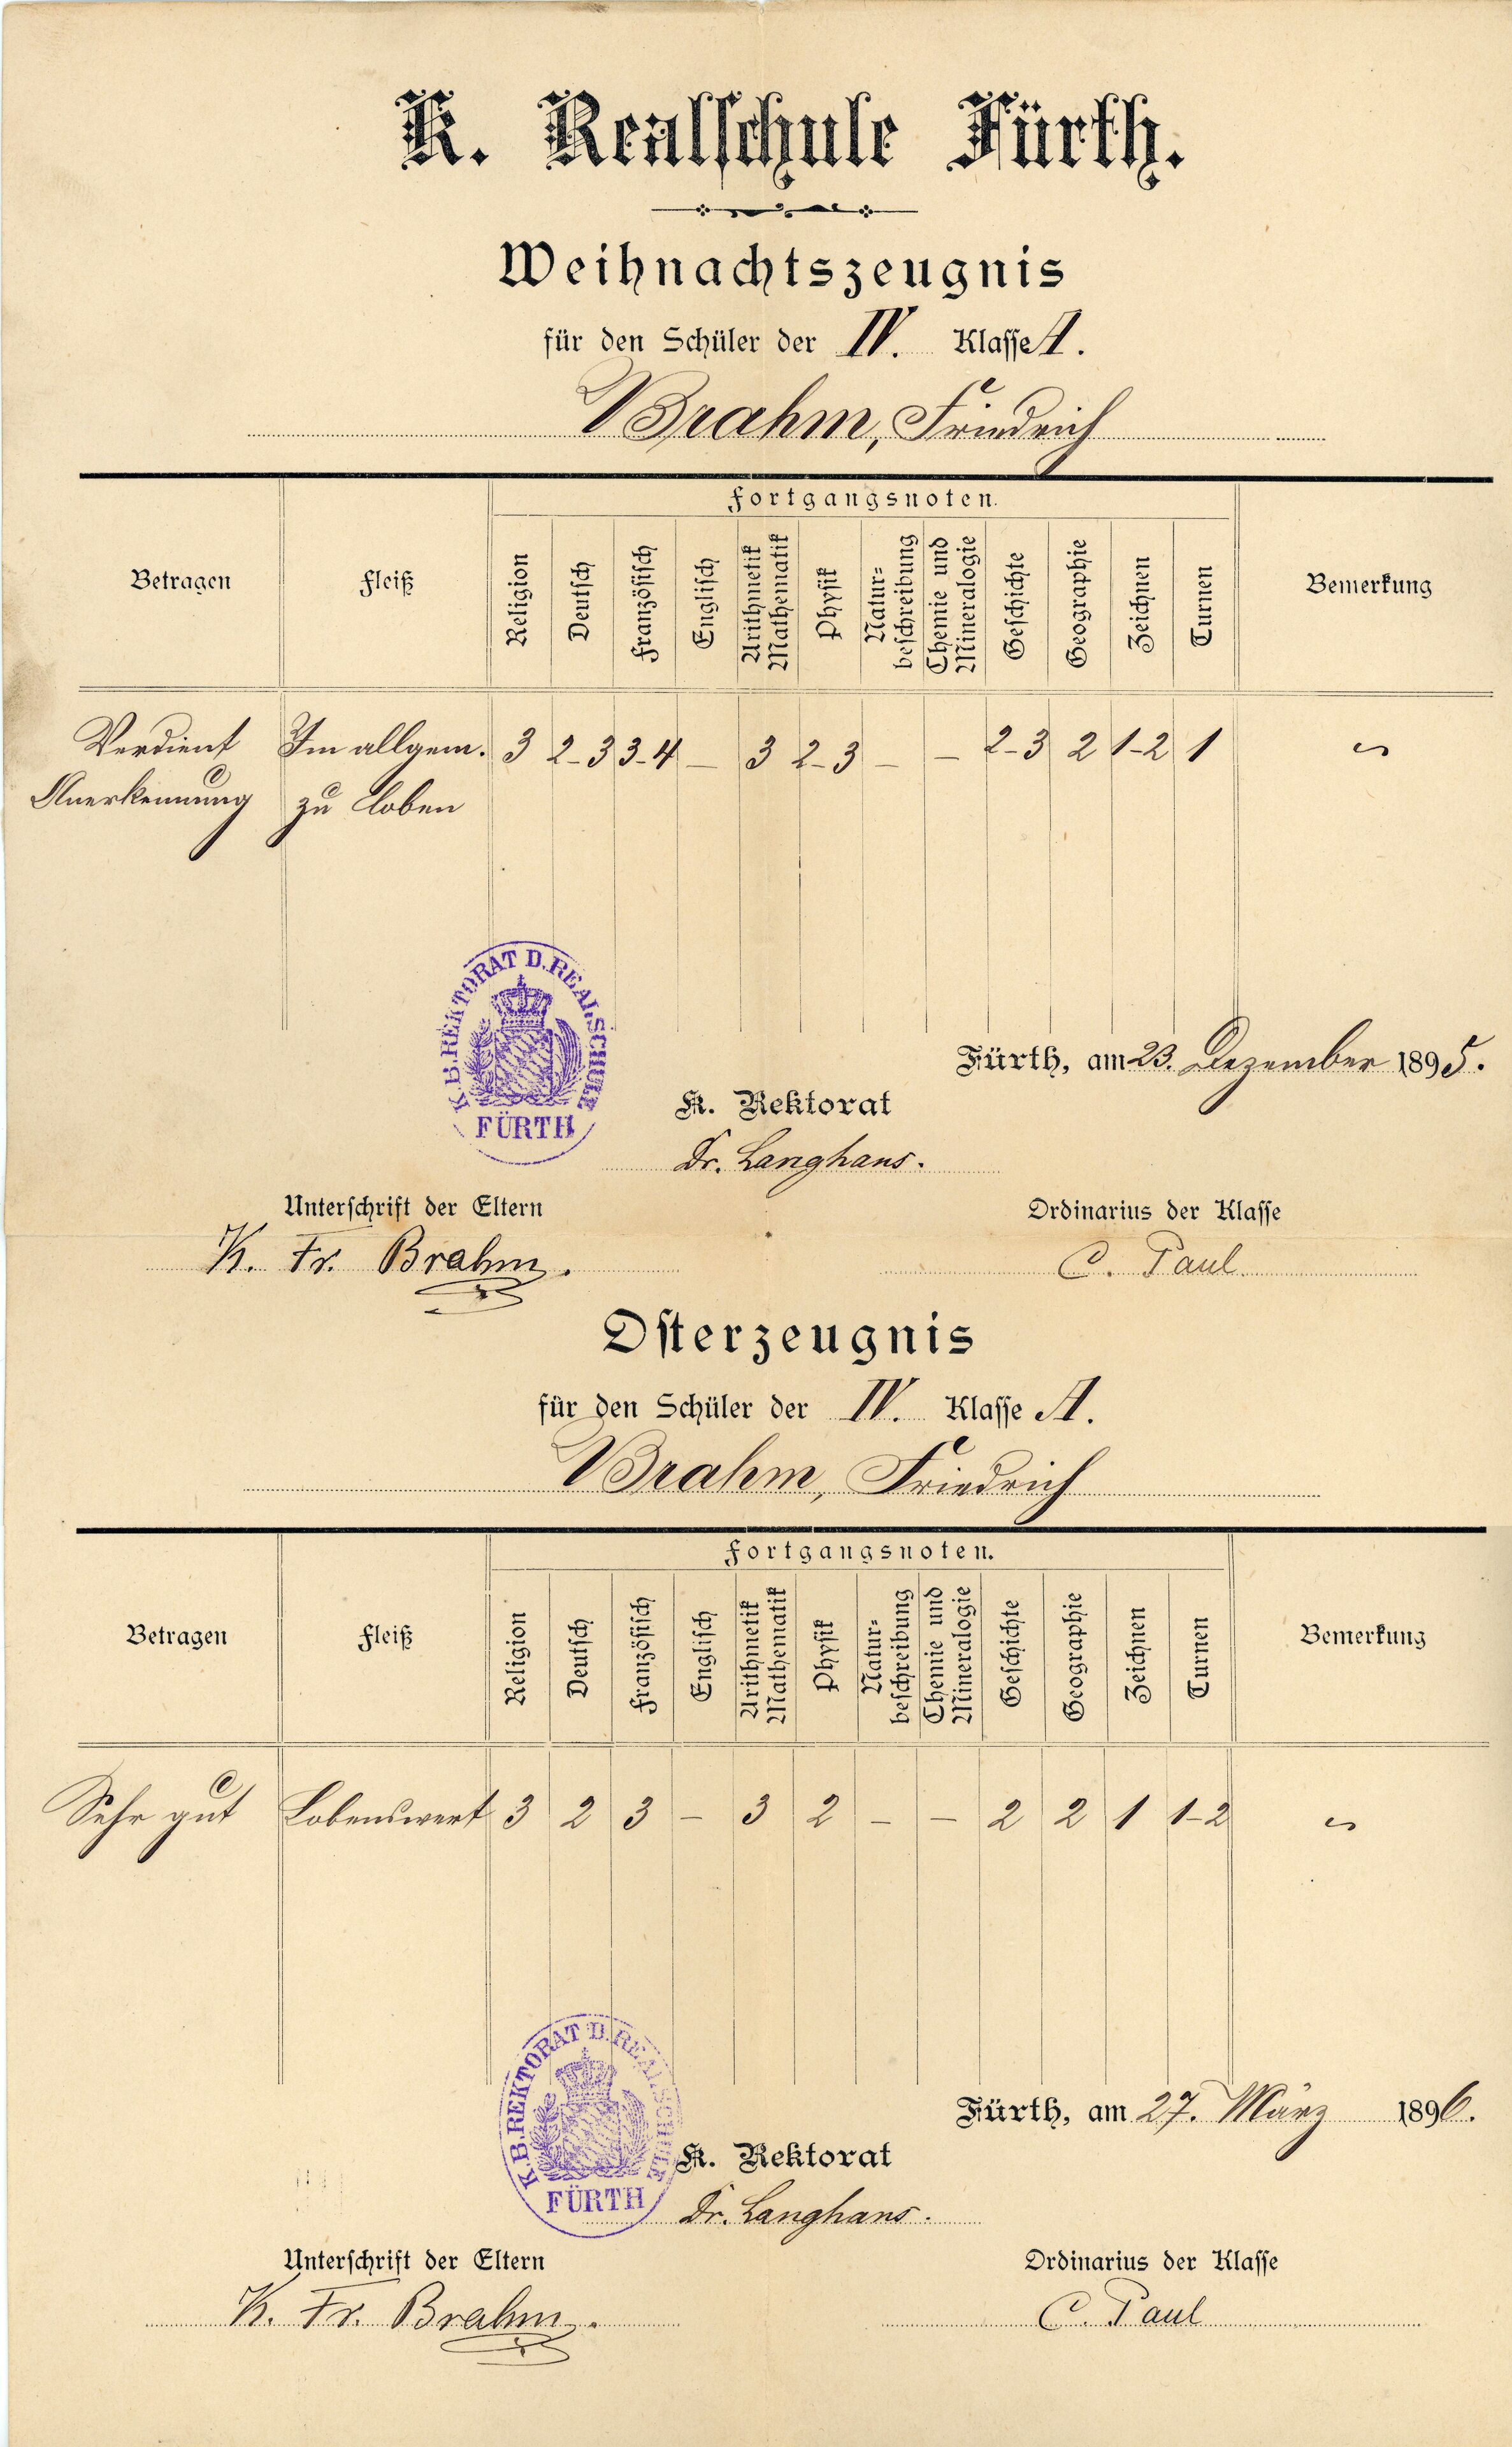 K. Realschule Fürth.
Weihnachtszeugnis
für den Schüler der IV. Klasse A.
Brahm, Friedrich
Betragen Fleiß Fortgangsnoten. Bemerkung
Religion Deutsch Französisch Englisch Arithmetik Mathematik Physik Natur-beschreibung Chemie und Mineralogie Geschichte Geographie Zeichnen Turnen
Verdient Im allgem. 3 2-3 3-4 – 3 2-3 – – 2-3 2 1-2 1
Anerkennung zu loben
K. B. REKTORAT D. REALSCHULE
FÜRTH
Fürth, am 23. Dezember 1895.
K. Rektorat
Dr. Langhans.
Unterschrift der Eltern Ordinarius der Klasse
K. Fr. Brahm. C. Paul
Osterzeugnis
für den Schüler der IV. Klasse A.
Brahm, Friedrich
Betragen Fleiß Fortgangsnoten. Bemerkung
Religion Deutsch Französisch Englisch Arithmetik Mathematik Physik Natur-beschreibung Chemie und Mineralogie Geschichte Geographie Zeichnen Turnen
Sehr gut Lobenswert 3 2 3 – 3 2 – – 2 2 1 1-2
K. B. REKTORAT D. REALSCHULE
FÜRTH
Fürth, am 27. März 1896.
K. Rektorat
Dr. Langhans.
Unterschrift der Eltern Ordinarius der Klasse
K. Fr. Brahm. C. Paul